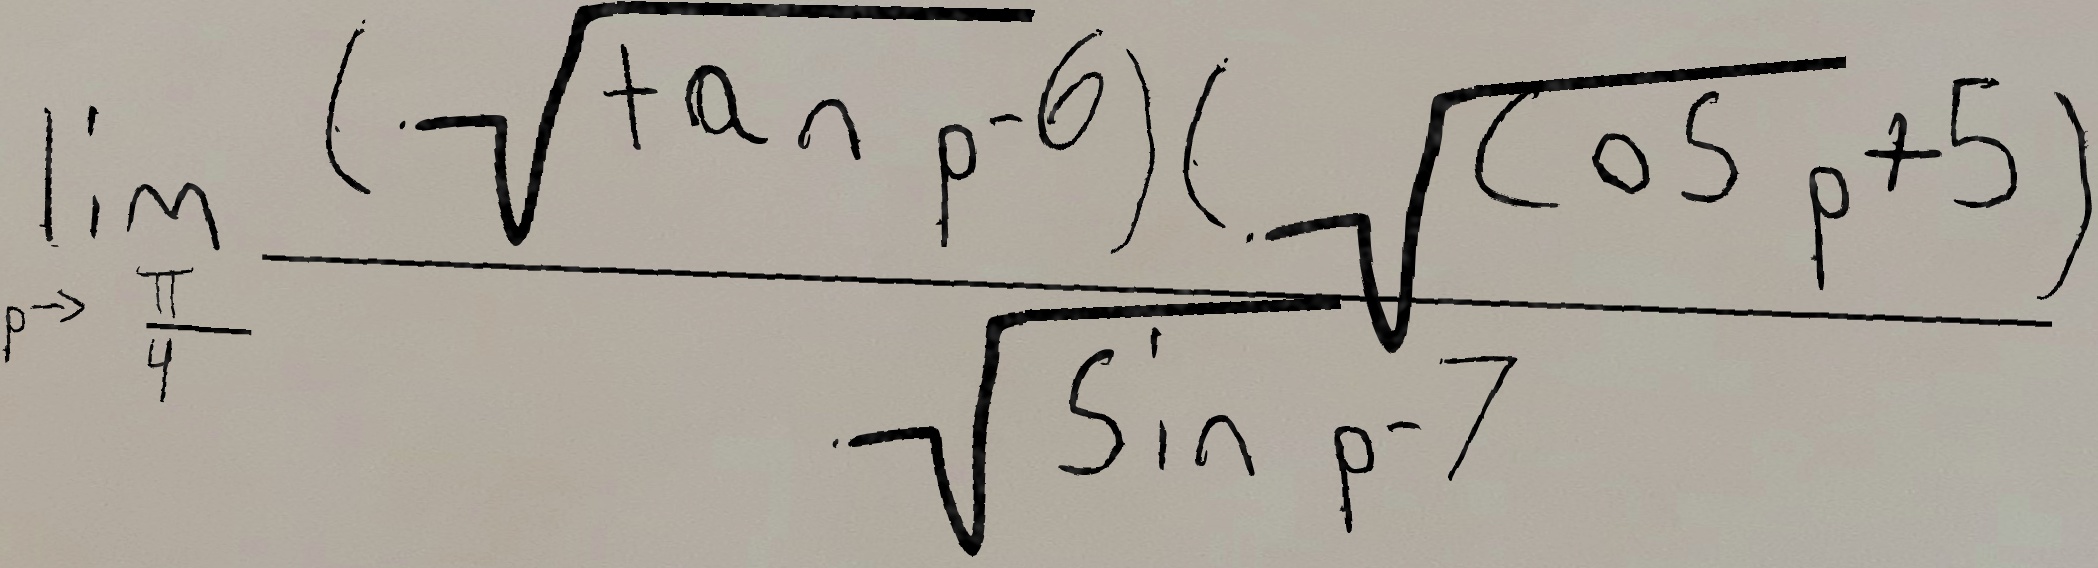 lim p→π/4 (√(tan p) - 6)(√(cos p) + 5) / (√(sin p) - 7)